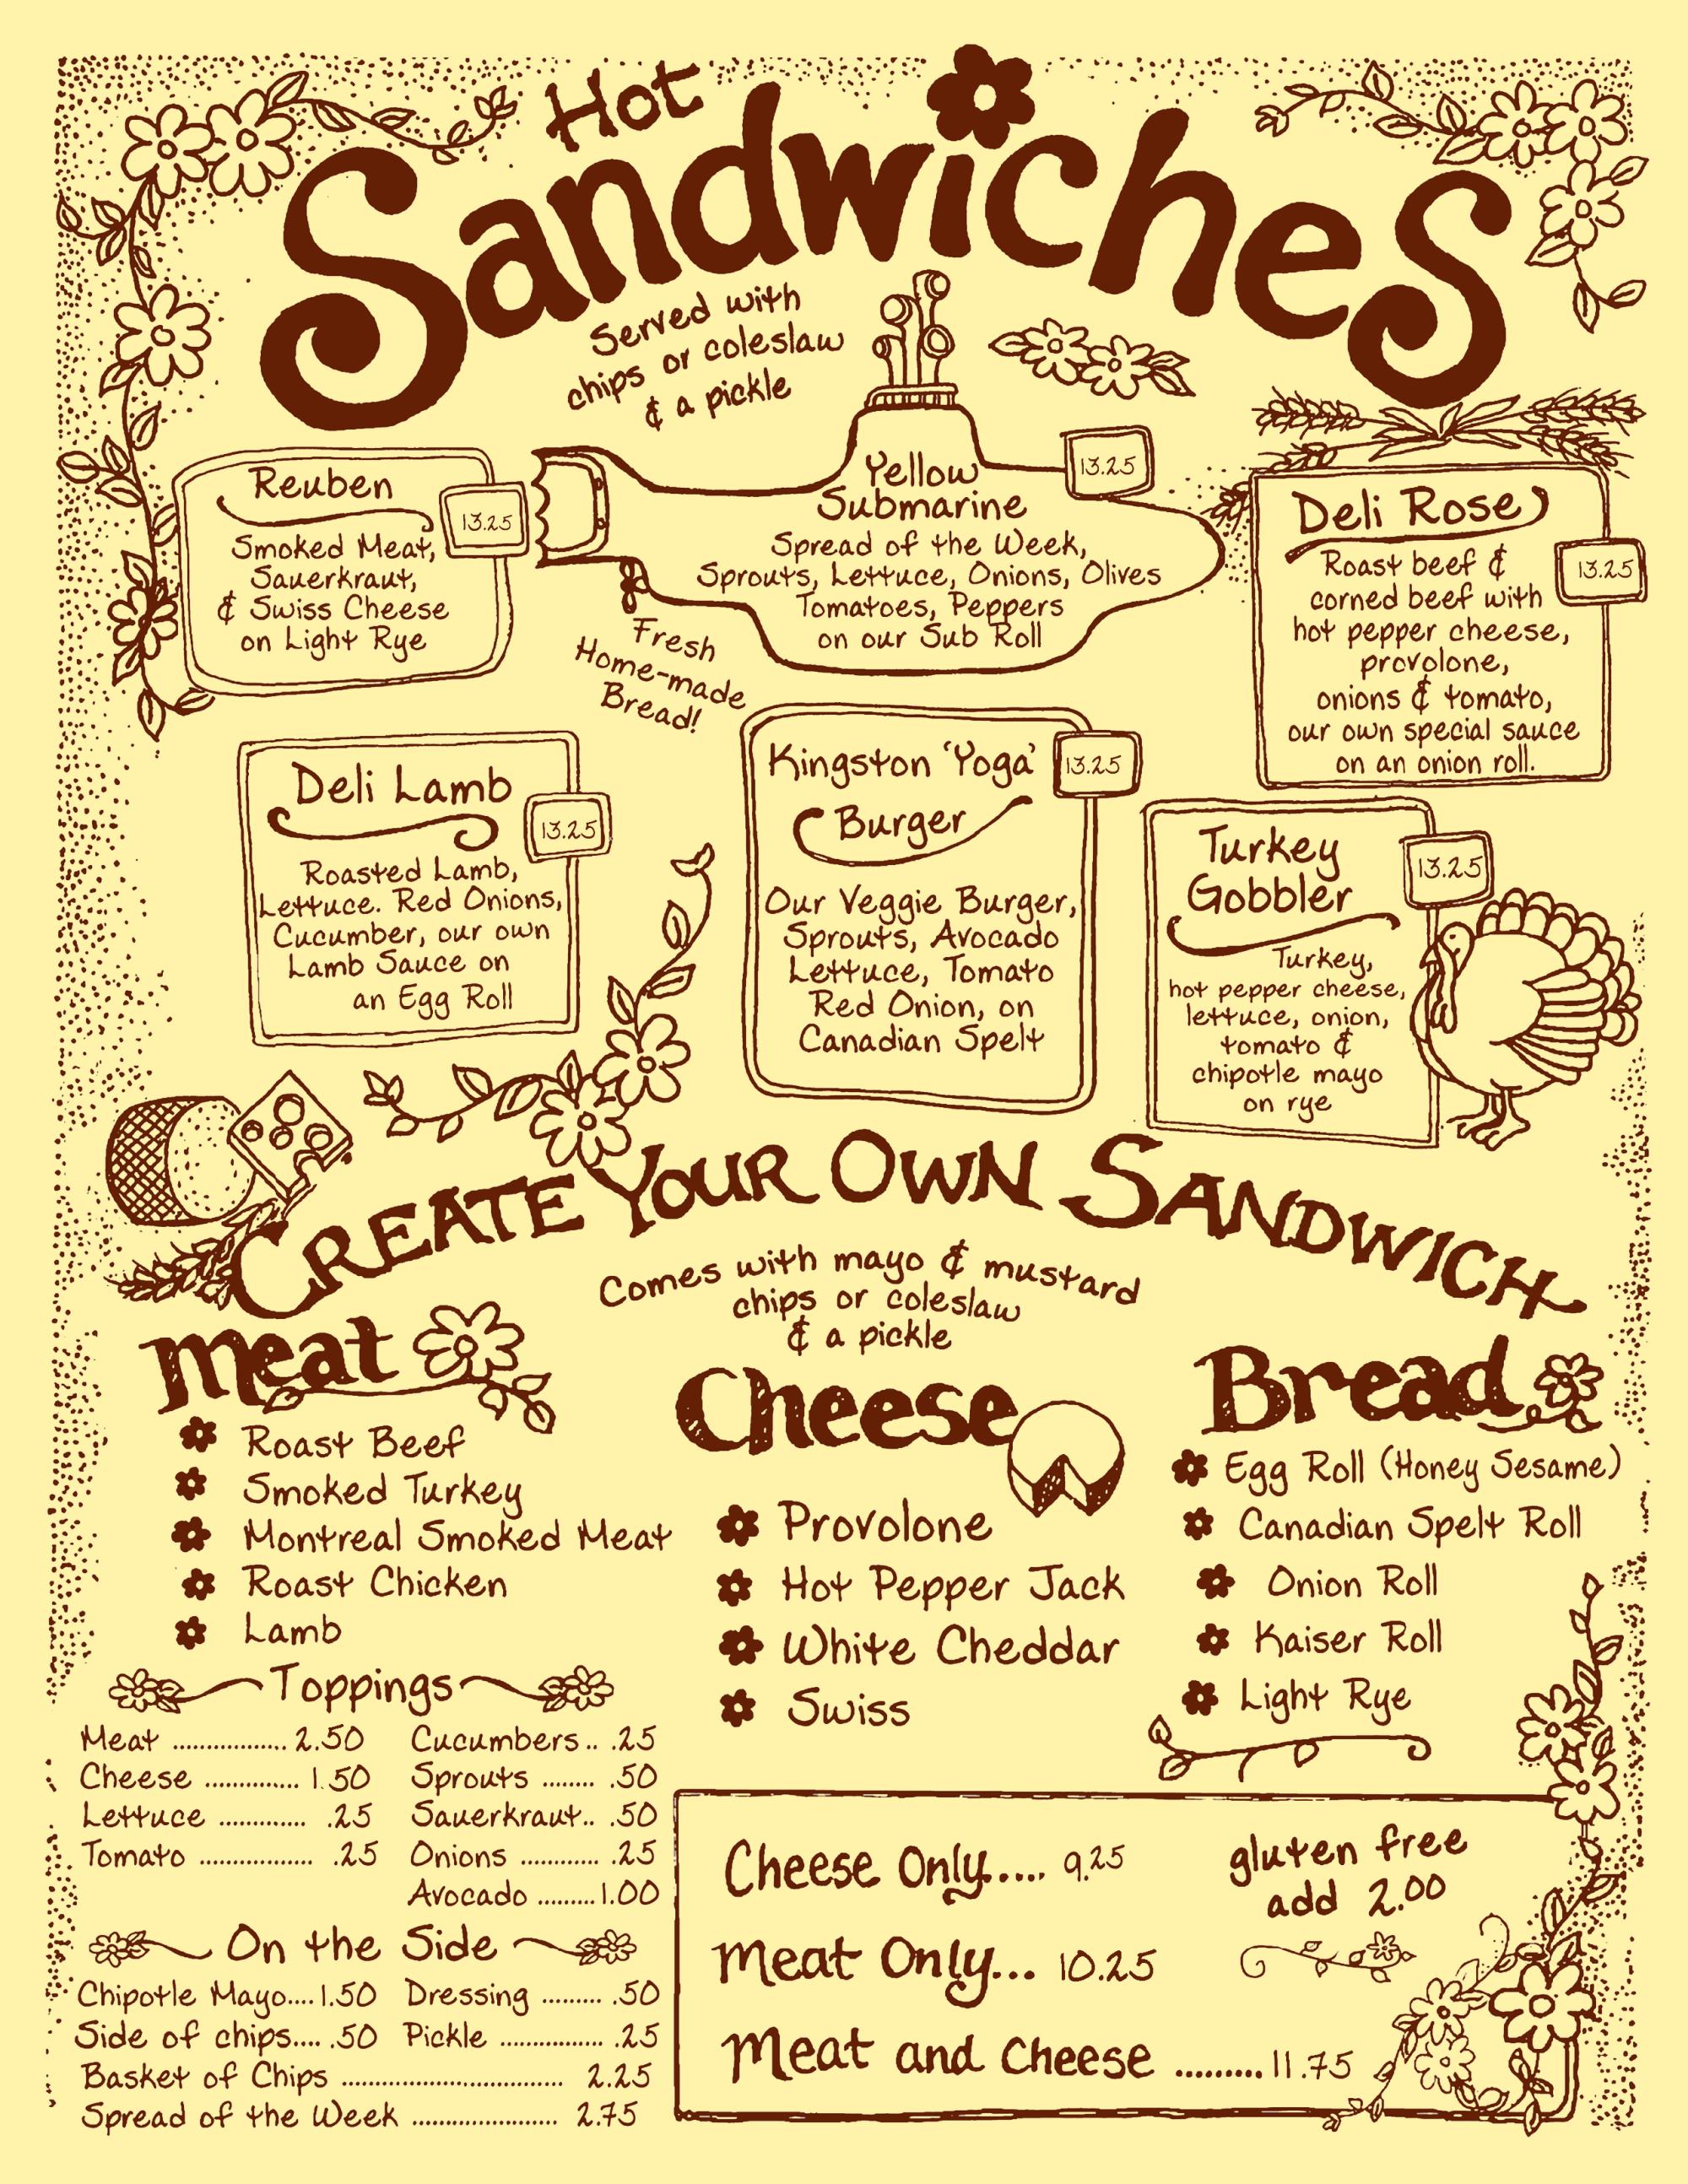 Hot
Sandwiches
Served with
chips or coleslaw
¢ a pickle
Reuben
13.25
Smoked Meat,
Sauerkraut,
¢ Swiss Cheese
on Light Rye
Yellow
Submarine
13.25
Spread of the Week,
Sprouts, Lettuce, Onions, Olives
Tomatoes, Peppers
on our Sub Roll
Fresh
Home-made
Bread!
Deli Rose
13.25
Roast beef ¢
corned beef with
hot pepper cheese,
provolone,
onions ¢ tomato,
our own special sauce
on an onion roll.
Deli Lamb
13.25
Roasted Lamb,
Lettuce. Red Onions,
Cucumber, our own
Lamb Sauce on
an Egg Roll
Kingston 'Yoga'
Burger
13.25
Our Veggie Burger,
Sprouts, Avocado
Lettuce, Tomato
Red Onion, on
Canadian Spelt
Turkey
Gobbler
13.25
Turkey,
hot pepper cheese,
lettuce, onion,
tomato ¢
chipotle mayo
on rye
CREATE YOUR OWN SANDWICH
Comes with mayo ¢ mustard
chips or coleslaw
¢ a pickle
Meat
Roast Beef
Smoked Turkey
Montreal Smoked Meat
Roast Chicken
Lamb
Cheese
Provolone
Hot Pepper Jack
White Cheddar
Swiss
Bread
Egg Roll (Honey Sesame)
Canadian Spelt Roll
Onion Roll
Kaiser Roll
Light Rye
Toppings
Meat ................. 2.50
Cheese .............. 1.50
Lettuce ............. .25
Tomato ................. .25
Cucumbers .. .25
Sprouts ........ .50
Sauerkraut.. .50
Onions ............ .25
Avocado .........1.00
On the Side
Chipotle Mayo....1.50
Side of chips..... .50
Dressing ......... .50
Pickle ................ .25
Basket of Chips .................................. 2.25
Spread of the Week ...................... 2.75
Cheese Only..... 9.25
Meat Only... 10.25
Meat and Cheese .........11.75
gluten free
add 2.00